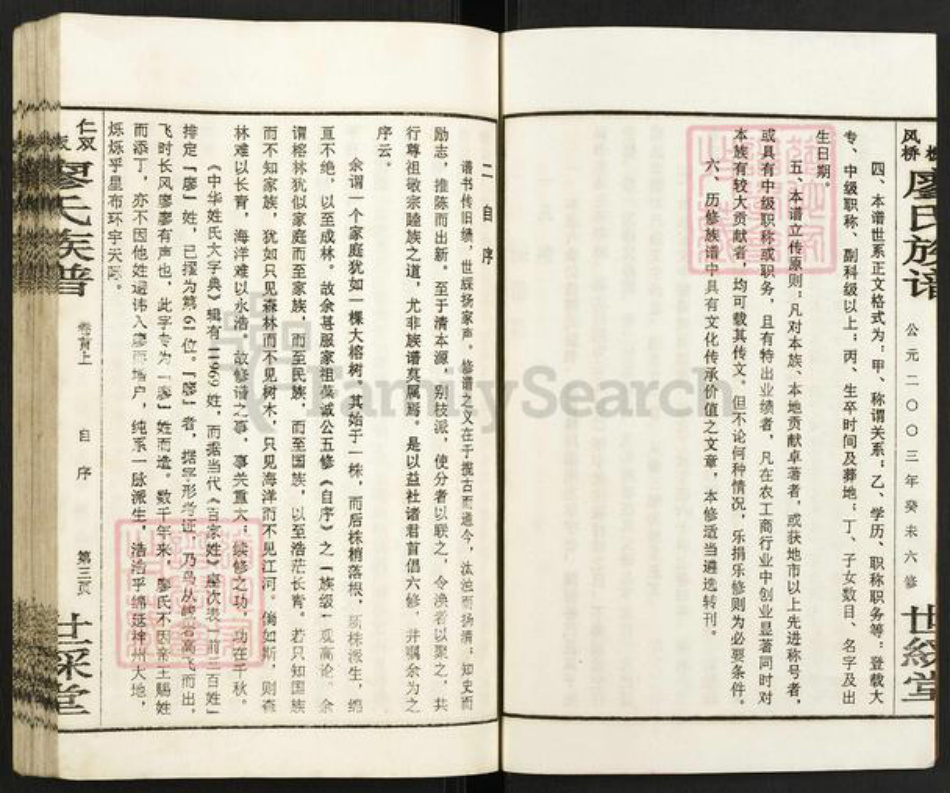 风桥
廖氏族谱
公元二〇〇三年癸未六修
世綵堂
四、本谱世系正文格式为：甲、称谓关系；乙、学历、职称职务等：登载大
专、中级职称、副科级以上；丙、生卒时间及葬地；丁、子女数目、名字及出
生日期。
五、本谱立传原则：凡对本族、本地贡献卓著者，或获地市以上先进称号者，
或具有中级职称或职务，且有特出业绩者，凡在农工商行业中创业显著同时对
本族有较大贡献者，均可载其传文。但不论何种情况，乐捐乐修则为必要条件。
六、历修族谱中具有文化传承价值之文章，本修适当遴选转刊。
二 自序
谱书传旧绩，世綵扬家声。修谱之义在于揽古而通今，汰浊而扬清；知史而
励志，推陈而出新。至于清本源，别枝派，使分者以联之，令涣者以聚之，共
行尊祖敬宗睦族之道，尤非族谱莫属焉。是以益社诸君首倡六修，并嘱余为之
序云。
余谓一个家庭犹如一棵大榕树，其始于一株，而后株梢落根，质株派生，绵
亘不绝，以至成林。故余甚服家祖葆诚公五修《自序》之「族级」观高论。余
谓榕林犹似家庭而至家族，而至民族，而至国族，以至浩茫长青。若只知国族
而不知家族，犹如只见森林而不见树木，只见海洋而不见江河。倘如斯，则森
林难以长青，海洋难以永浩。故修谱之事，事关重大；续修之功，功在千秋。
《中华姓氏大字典》辑有11969姓，而据当代《百家姓》座次表「前三百姓」
排定「廖」姓，已擢为第61位。「廖」者，据字形考证，乃鸟从 高飞而出，
飞时长风廖廖有声也，此字专为「廖」姓而造。数千年来，廖氏不因帝王赐姓
而添丁，亦不因他姓避讳入廖而增户，纯系一脉派生，浩浩乎绵延神州大地，
烁烁乎星布环宇天际。
仁双
廖氏族谱
卷首上
自序
第三页
世綵堂
FamilySearch